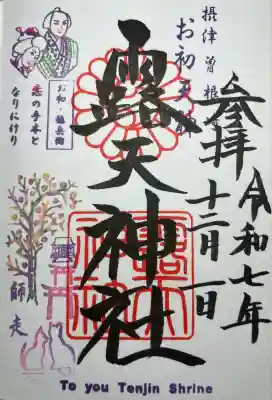 摂津 曽根崎
お初天神
参拝
令和七年
十二月一日
露天神社
お初・徳兵衛
恋の手本と
なりにけり
師走
露天
神社
To you Tenjin Shrine